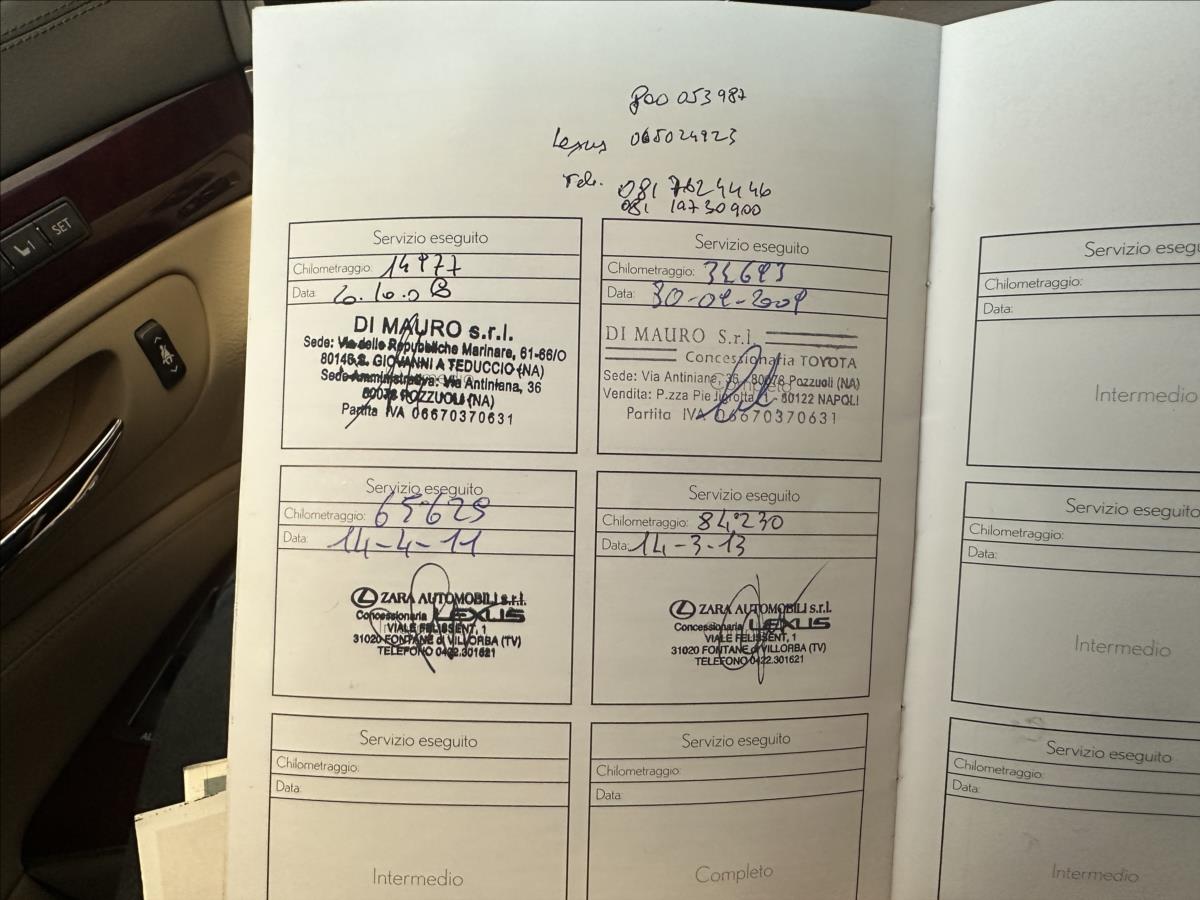 800 053987
Lexus 065024923
Tel. 081 7624446
081 19730900
Servizio eseguito
Chilometraggio: 14977
Data: 20.10.08
DI MAURO s.r.l.
Sede: Via delle Repubbliche Marinare, 61-66/O
80146 S. GIOVANNI A TEDUCCIO (NA)
Sede Amministrativa: Via Antiniana, 36
80078 POZZUOLI (NA)
Partita IVA 06670370631
Servizio eseguito
Chilometraggio:
Data: 30-09-2009
DI MAURO S.r.l.
Concessionaria TOYOTA
Sede: Via Antiniana, 36 - 80078 Pozzuoli (NA)
Vendita: P.zza Piedigrotta, 1 - 80122 NAPOLI
Partita IVA 06670370631
Servizio eseguito
Chilometraggio: 65629
Data: 14-4-11
ZARA AUTOMOBILI s.r.l.
Concessionaria LEXUS
VIALE FELISSENT, 1
31020 FONTANE di VILLORBA (TV)
TELEFONO 0422.301621
Servizio eseguito
Chilometraggio: 84.230
Data: 14-3-13
ZARA AUTOMOBILI s.r.l.
Concessionaria LEXUS
VIALE FELISSENT, 1
31020 FONTANE di VILLORBA (TV)
TELEFONO 0422.301621
Servizio eseguito
Chilometraggio:
Data:
Intermedio
Servizio eseguito
Chilometraggio:
Data:
Completo
Servizio esegu
Chilometraggio:
Data:
Intermedio
Servizio eseguito
Chilometraggio:
Data:
Intermedio
Servizio eseguito
Chilometraggio:
Data:
Intermedio
SET